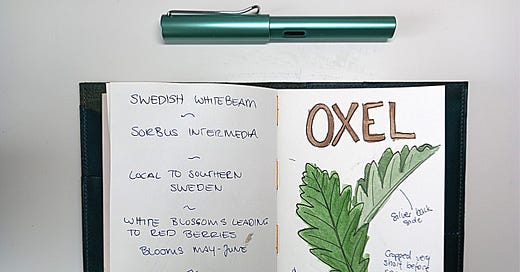 SWEDISH WHITEBEAM
~
SORBUS INTERMEDIA
~
LOCAL TO SOUTHERN
SWEDEN
~
WHITE BLOSSOMS LEADING
TO RED BERRIES
BLOOMS MAY-JUNE
OXEL
Silver back
side
Cropped very
short before